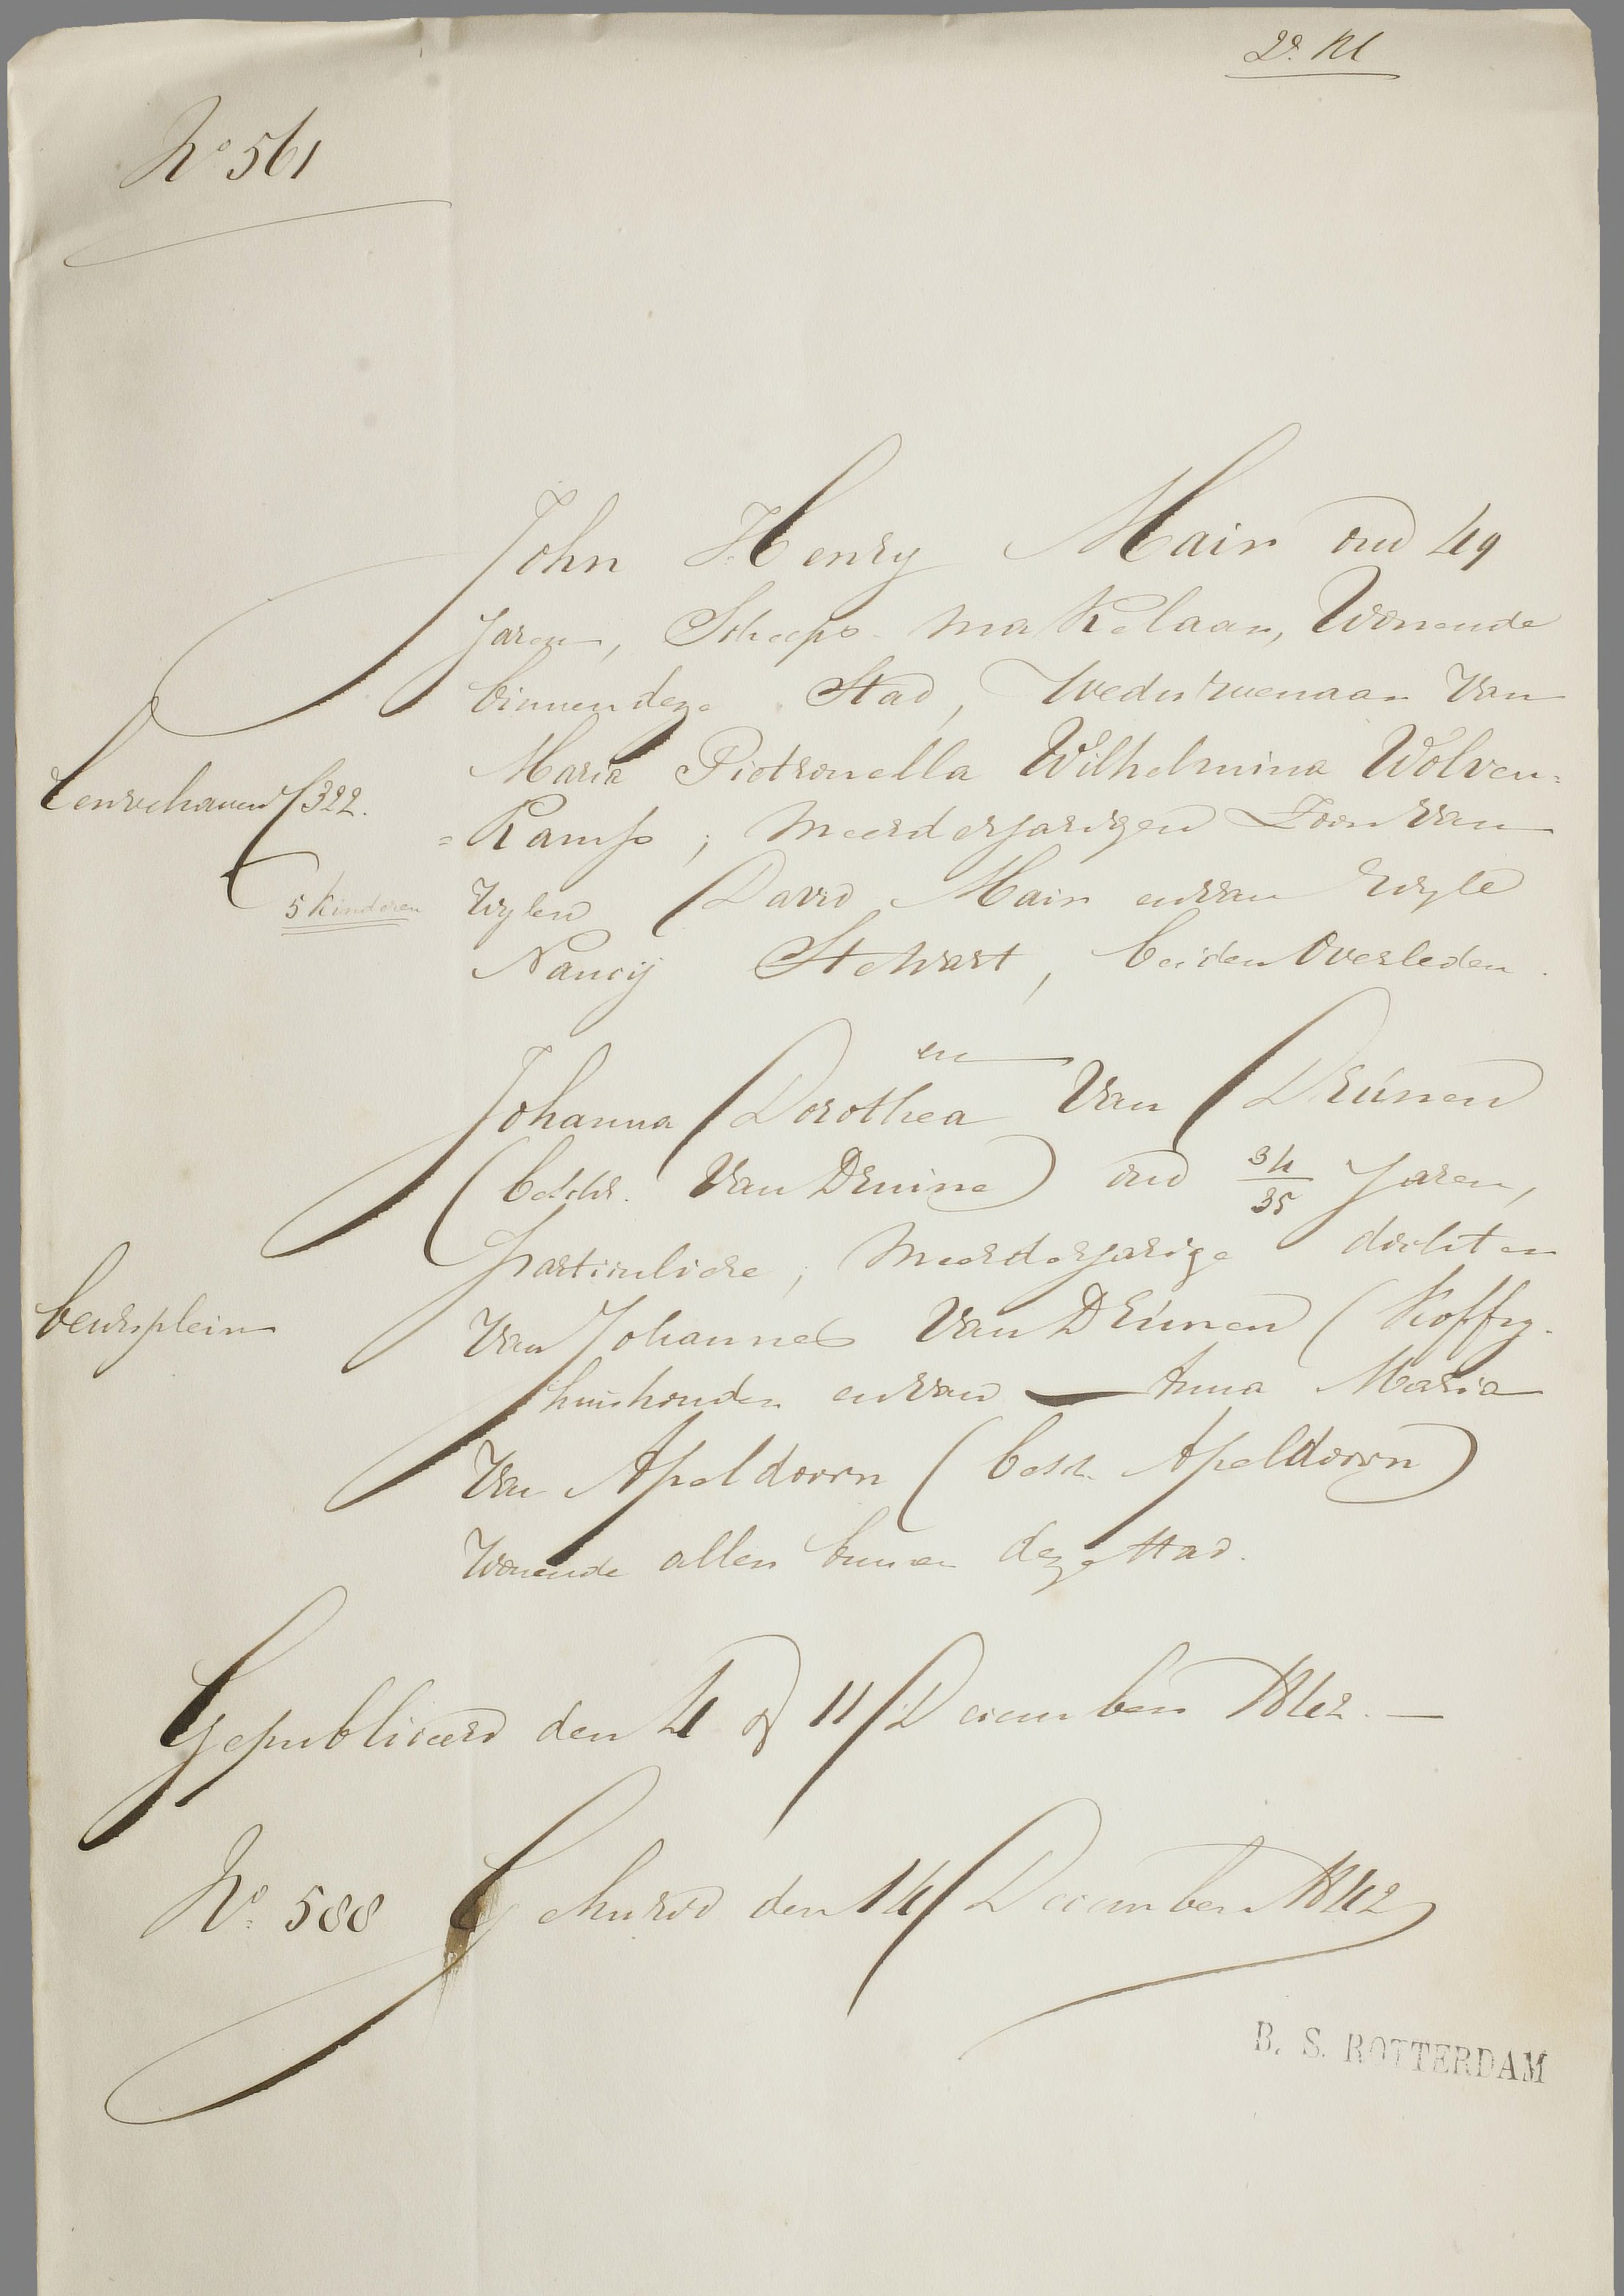 2e. Kl
No 561
John Henry Mair oud 49
Jaren, Scheeps-makelaar, Wonende
binnen deze Stad, Weduwenaar Van
Maria Pietronella Wilhelmina Wolven=
Leuvehaven 322.
=Kamp; Meerderjarigen Zoon van
5 Kinderen
Wylen David Mair en van Wyle
Nancij Stewart, beiden Overleden.
en
Johanna Dorothea Van Drúnen
(Van Druine) oud 34/35 Jaren,
particuliere; Meerderjarige dochter
beursplein
Van Johannes Van Drúnen (Koffy-
huishouder en van — Anna Maria
Van Apeldoorn (Apeldoorn)
Wonende allen binnen deze Stad.
Gepubliceerd den 4 & 11 December 1842. —
No. 588 Gehuwd den 14 December 1842
B. S. ROTTERDAM